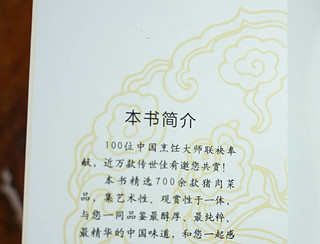 本书简介
100位中国烹饪大师联袂奉
献，近万款传世佳肴邀您共赏！
本书精选700余款猪肉菜
品，集艺术性、观赏性于一体，
与您一同品鉴最醇厚、最纯粹、
最精华的中国味道，和您一起感